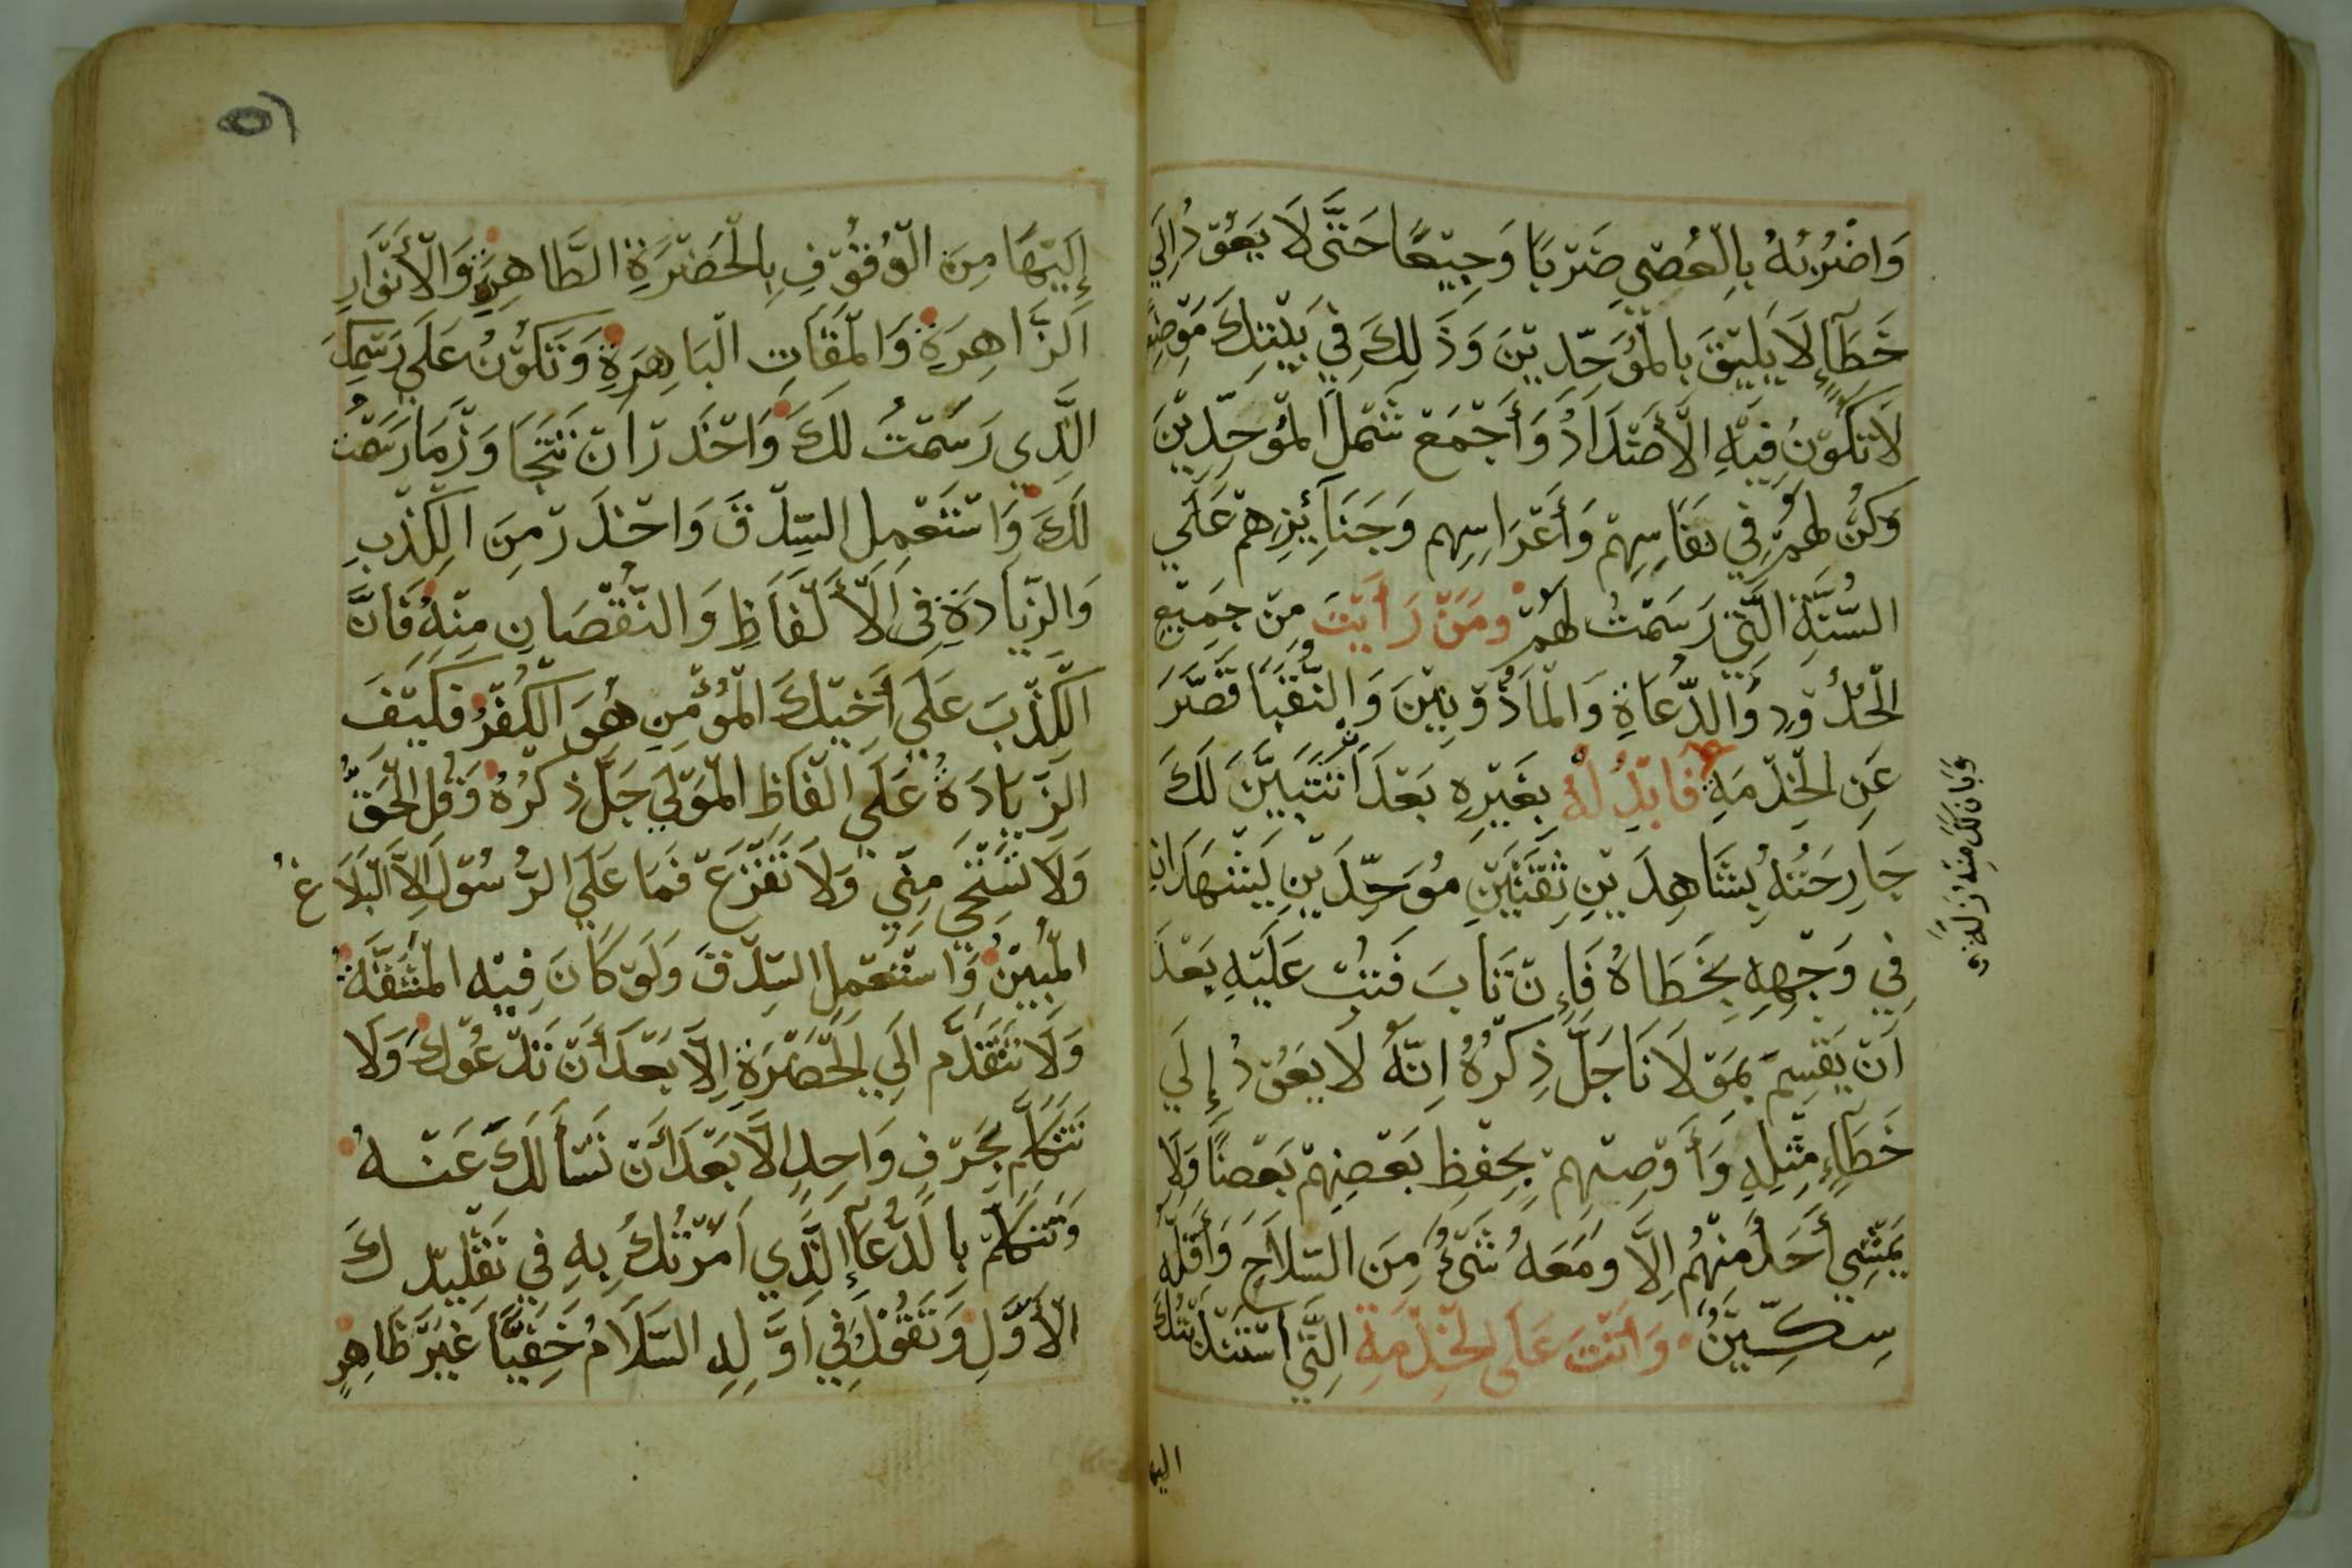 وَاضْرُبُهُ بِالْعُصِي ضَرْبًا وَجِيْعًا حَتَّى لَا يَعُوْدُ اِلَي
خَطَآءٍ لَا يَلِيْقَ بِالْمُوَحِّدِيْنَ وَذَلِكَ فِي بَيْتِكَ مَوْضِعٍ
لَا تَكُوْنُ فِيْهِ الْأَضْدَادُ وَأَجْمَعْ شَمْلَ الْمُوَحِّدِيْنَ
وَكُنْ لَهُمْ فِي نِفَاسِهِمْ وَأَعْرَاسِهِم وَجَنَآئِزِهِمْ عَلَي
السُّنَّةِ الَّتِي رَسَمْتُ لَهُمْ وَمَنْ رَأَيْتَ مِنْ جَمِيْعِ
الْحُدُوْدِ وَالدُّعَاةِ وَالْمَاذُوْنِيْنَ وَالنُّقَبَا قَصَّرَ
عَنِ الْخِدْمَةِ فَابْدِلْهُ بِغَيْرِهِ بَعْدَ اَنْ تَتَبَيَّنَ لَكَ
جَارِحَتُهُ بِشَاهِدَيْنِ ثِقَتَيْنِ مُوَحِّدَيْنِ يَشْهَدَانِ
فِي وَجْهِهِ بِخَطَاهُ فَإِنْ تَابَ فَتُبْ عَلَيْهِ بَعْدَ
اَنْ يَقْسِمَ بِمَوْلَانَا جَلَّ ذِكْرُهُ اِنَّهُ لَا يَعُوْدُ إِلَي
خَطَآءٍ مِثْلِهِ وَأَوْصِيْهِمْ بِحِفْظِ بَعْضِهِمْ بَعْضًا وَلَا
يَمْشِي أَحَدٌ مِنْهُم اِلَّا وَمَعَهُ شَيْءٌ مِنَ السّلَاحِ وَأَقَلَّهُ
سِكِّيْنٌ وَأَنْتَ عَلَى الْخِدْمَةِ الَّتِي اسْتَنَدْبتُكَ
اليها
وَبَانَ لَكَ مِنْهُ زَلَّةً
إِلَيْهَا مِنَ الْوُقُوْفِ بِالْحَضْرَةِ الطَّاهِرَةِ وَالْأَنْوَارِ
الزَّاهِرَةِ وَالْمَقَاتِ الْبَاهِرَةِ وَتَكُوْنُ عَلَي رَسْمِكَ
الَّذِي رَسَمْتُ لَكَ وَاحْذَرْ اَنْ تَتَجَاوَزْ مَا رَسَمْتُ
لَكَ وَاسْتَعْمِلِ السِّدْقَ وَاحْذَرْ مِنَ الْكِذْبِ
وَالزِّيَادَةِ فِي الْأَلْفَاظِ وَالنُّقْصَانِ مِنْهُ فَاِنَّ
الْكِذْبَ عَلَي أَخِيْكَ الْمُؤْمِنِ هُوَ الْكُفْرُ فَكَيْفَ
الزِّيَادَةُ عَلَي اَلْفَاظِ الْمَوْلَي جَلَّ ذِكْرُهُ وَقُلِ الْحَقَّ
وَلَا تَسْتَحِي مِنِّي وَلَا تَفْزَعْ فَمَا عَلَي الرُّسُوْلِ اِلَّا الْبَلَاغُ
الْمُبِيْنُ وَاسْتَعْمِلِ السِّدْقَ وَلَوْ كَانَ فِيْهِ الْمَشَقَّةُ
وَلَا تَتَقَدَّم اِلَي الْحَضْرَةِ اِلَّا بَعْدَ أَنْ نَدْعُوْكَ وَلَا
تَتَكَلَّم بِحَرْفٍ وَاحِدٍ اِلَّا بَعْدَ أَنْ نَسْأَلَكَ عَنْهُ
وَتَتَكَلَّمْ بِالدُّعَآءِ الَّذِي اَمَرْتُكَ بِهِ فِي تَقْلِيْدِكَ
الْأَوَّلِ وَتَقُوْلُ فِي اَوَّلِهِ السَّلَامُ خَفِيًّا غَيْرَ ظَاهِرٍ